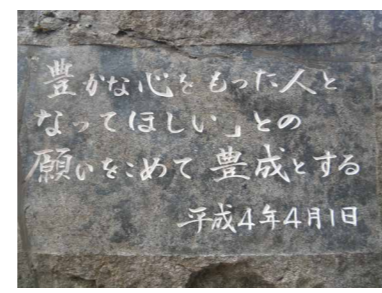 豊かな心をもった人と
なってほしい」との
願いをこめて豊成とする
平成4年4月1日